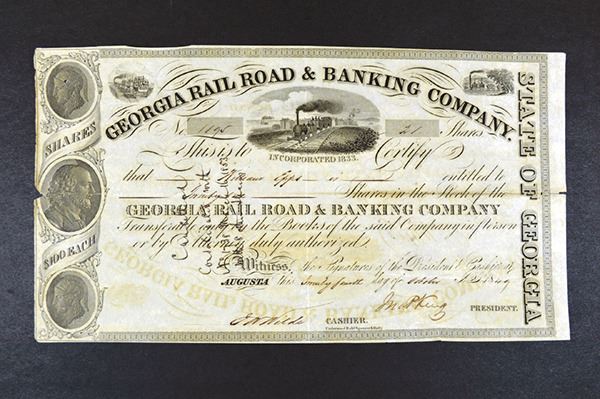 GEORGIA RAIL ROAD & BANKING COMPANY.
No. 1098 21 Shares
INCORPORATED 1833.
This is to Certify
that entitled to
Shares in the Stock of the
GEORGIA RAIL ROAD & BANKING COMPANY
Transferable only on the Books of the said Company in person
or by Attorney duly authorized
Witness, the Signatures of the President & Cashier at
AUGUSTA this Twenty fourth day of October 1849
Jno P King PRESIDENT.
CASHIER.
SHARES
$100 EACH
STATE OF GEORGIA